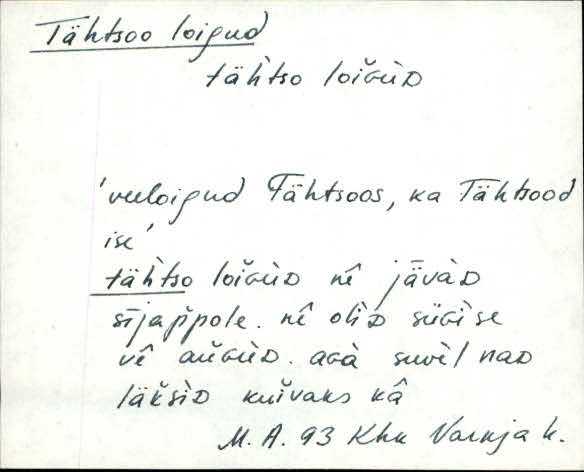 Tähtsoo loigud
tähtso loiGùD
'veeloigud Tähtsoos, ka Tähtsood
ise'
tähtso loiGùD nê jǟvàD
sījaᴘ̌pole. nê oĺiD süGise
vê auGùD. aGà suvèl nad
läksìD kuivaks kâ
M. A. 93 Khk Varnja k.